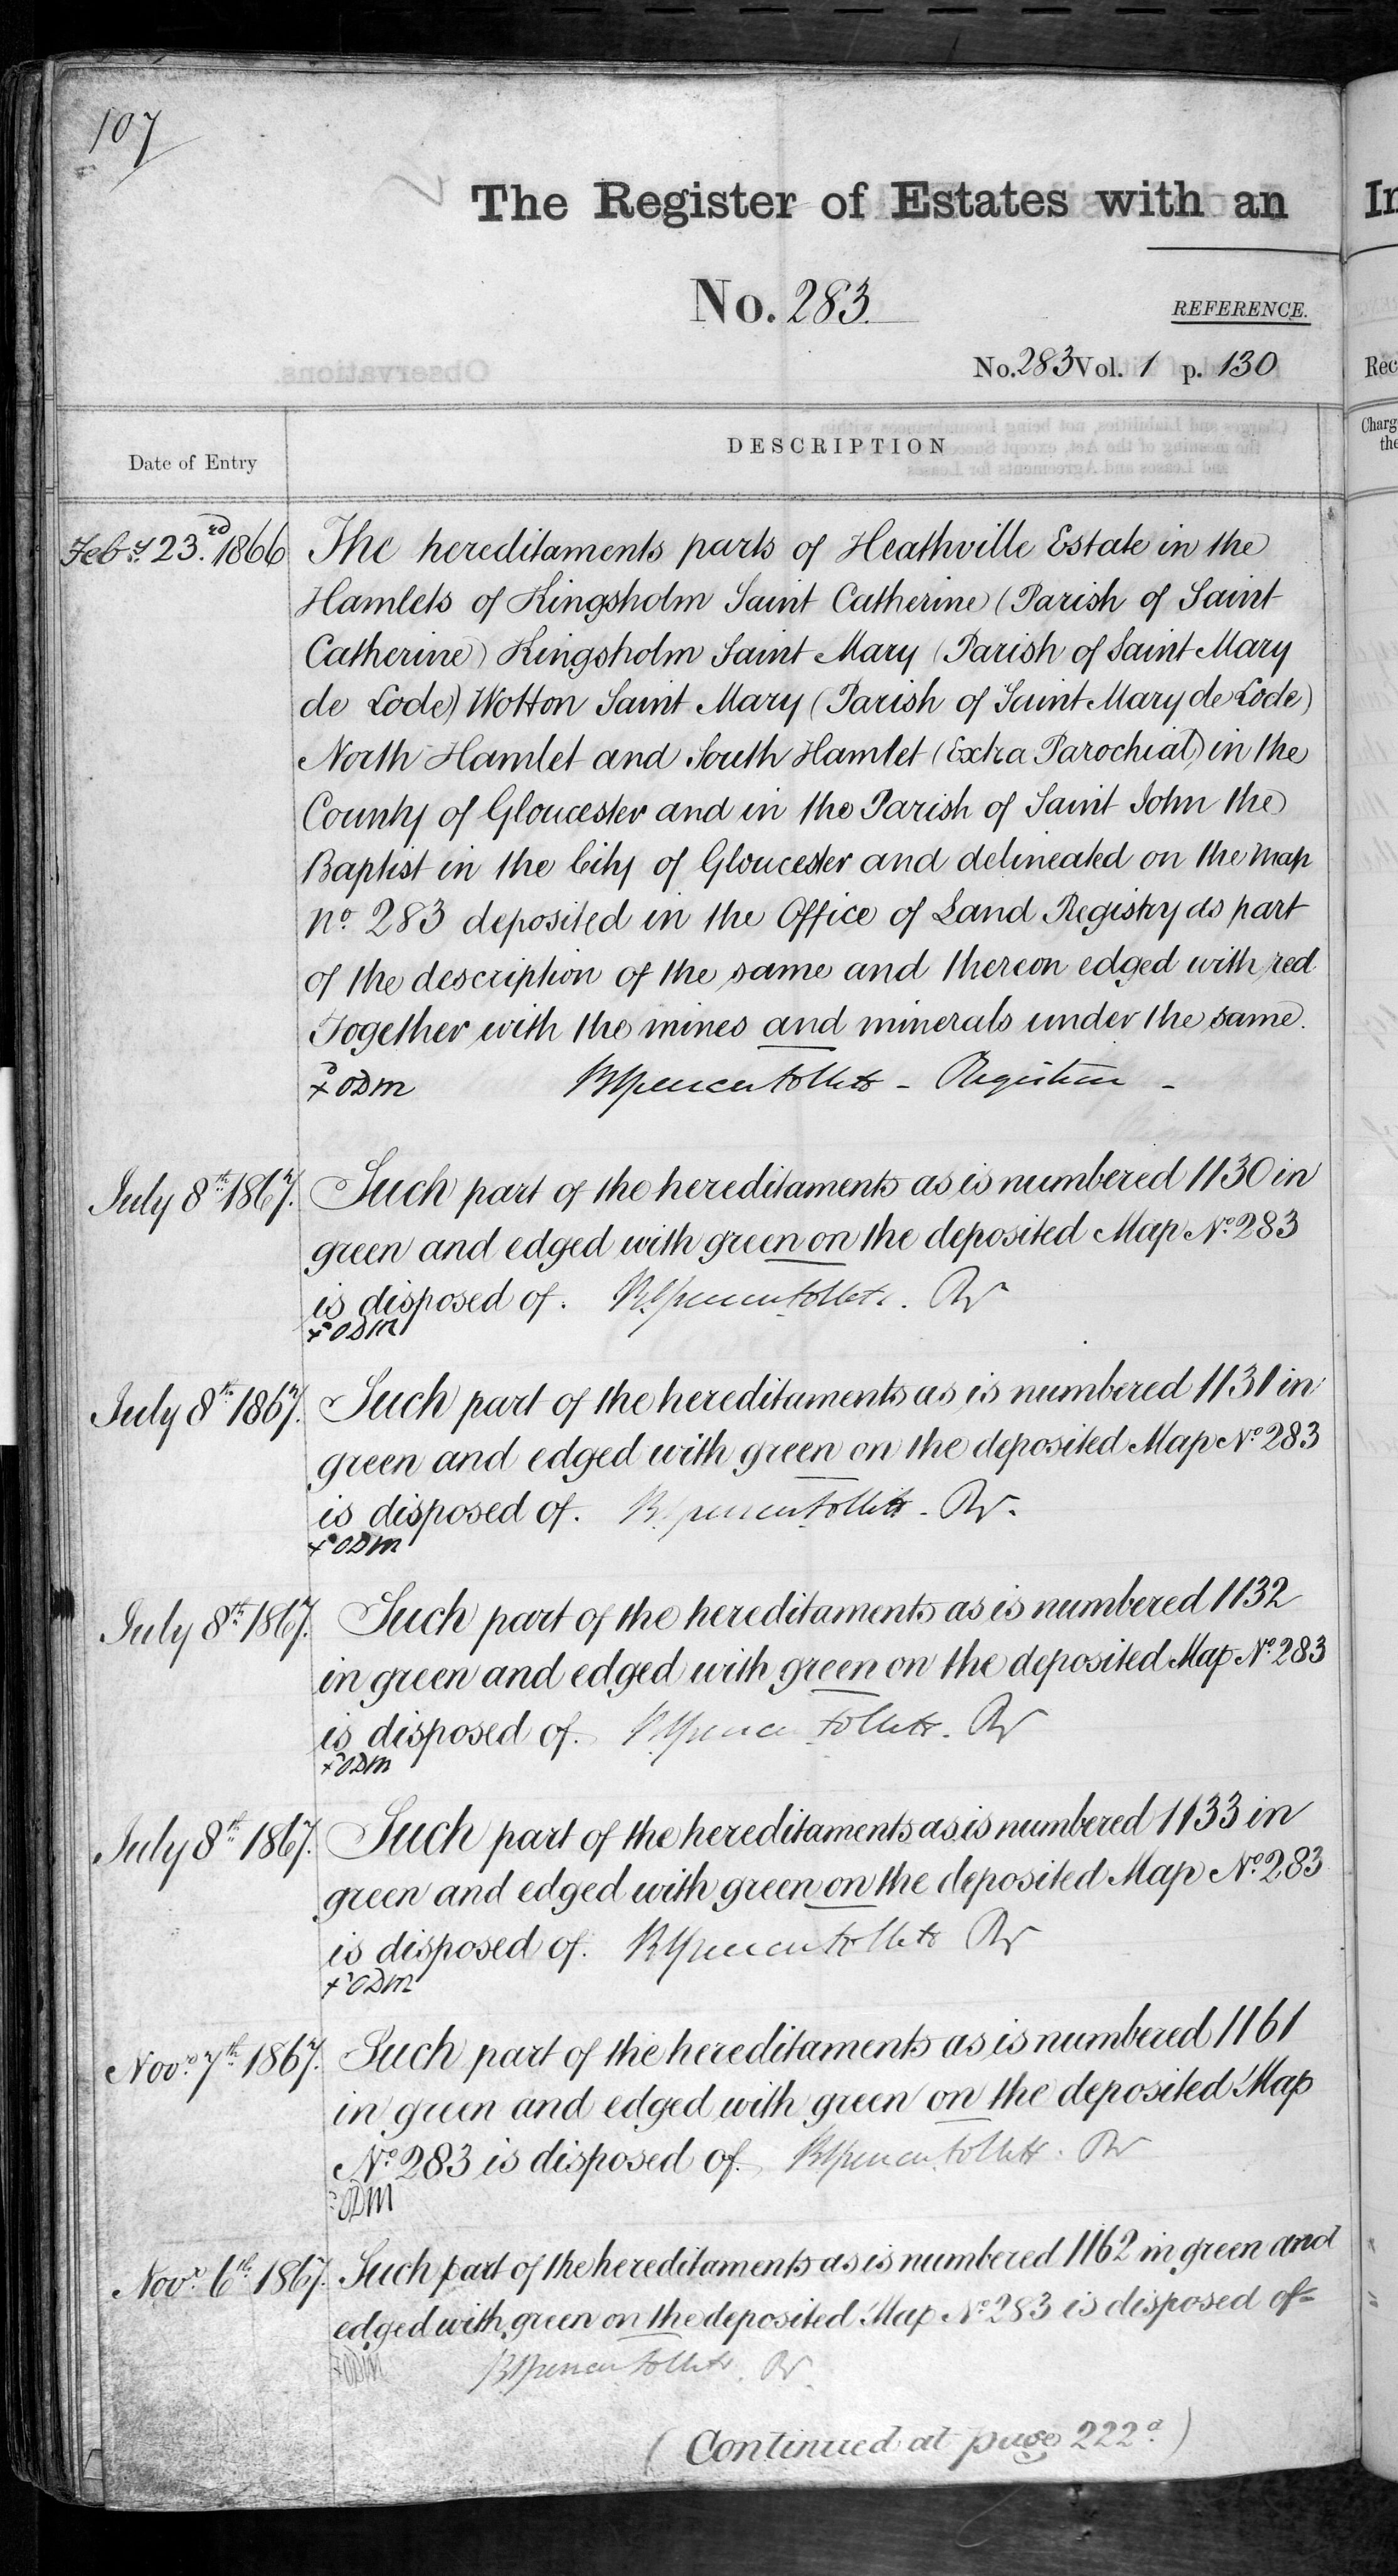 107
The Register of Estates with an
In
No. 283.
REFERENCE.
No. 283 Vol. 1 p. 130
Observations.
Rec
Date of Entry
DESCRIPTION
Charges and Liabilities, not being Incumbrances within
the meaning of the Act, except Succe
and Leases and Agreements for Leases
Charg
the
Feby. 23rd. 1866 The hereditaments parts of Heathville Estate in the
Hamlets of Kingsholm Saint Catherine (Parish of Saint
Catherine) Kingsholm Saint Mary (Parish of Saint Mary
de Lode) Wotton Saint Mary (Parish of Saint Mary de Lode)
North Hamlet and South Hamlet (Extra Parochial) in the
County of Gloucester and in the Parish of Saint John the
Baptist in the City of Gloucester and delineated on the map
no. 283 deposited in the Office of Land Registry as part
of the description of the same and thereon edged with red.
Together with the mines and minerals under the same.
ODM Brent Spencer Follett - Registrar -
July 8th. 1867. Such part of the hereditaments as is numbered 1130 in
green and edged with green on the deposited Map No. 283
is disposed of. B. Spencer Follett. Rr
ODM
July 8th. 1867. Such part of the hereditaments as is numbered 1131 in
green and edged with green on the deposited Map No. 283
is disposed of. B. Spencer Follett - Rr.
ODM
July 8th. 1867. Such part of the hereditaments as is numbered 1132
in green and edged with green on the deposited Map No. 283
is disposed of. B Spencer Follett. Rr
ODM
July 8th. 1867. Such part of the hereditaments as is numbered 1133 in
green and edged with green on the deposited Map No. 283
is disposed of. B Spencer Follett Rr
ODM
Novr. 7th. 1867. Such part of the hereditaments as is numbered 1161
in green and edged with green on the deposited Map
No. 283 is disposed of. B Spencer Follett. Rr
ODM
Novr. 6th. 1867. Such part of the hereditaments as is numbered 1162 in green and
edged with green on the deposited Map No. 283 is disposed of=
ODM B Spencer Follett. Rr.
(Continued at page 222a.)